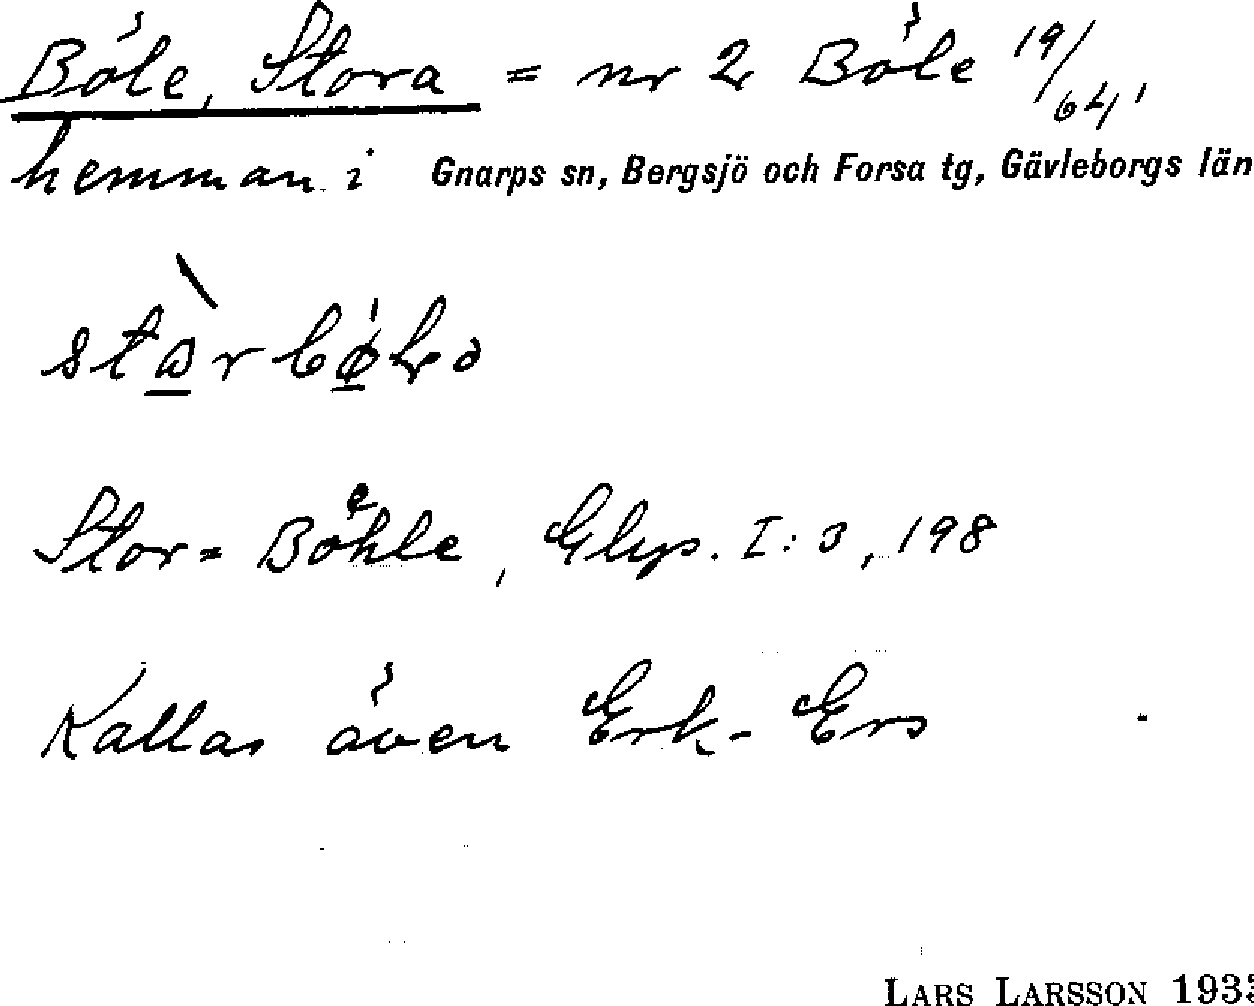 Böle, Stora = nr 2 Böle 19/64,
hemman i Gnarps sn, Bergsjö och Forsa tg, Gävleborgs län
Stor= Böhle, Glys. I: 3, 198
Kallas även Erk-Ers
LARS LARSSON 193